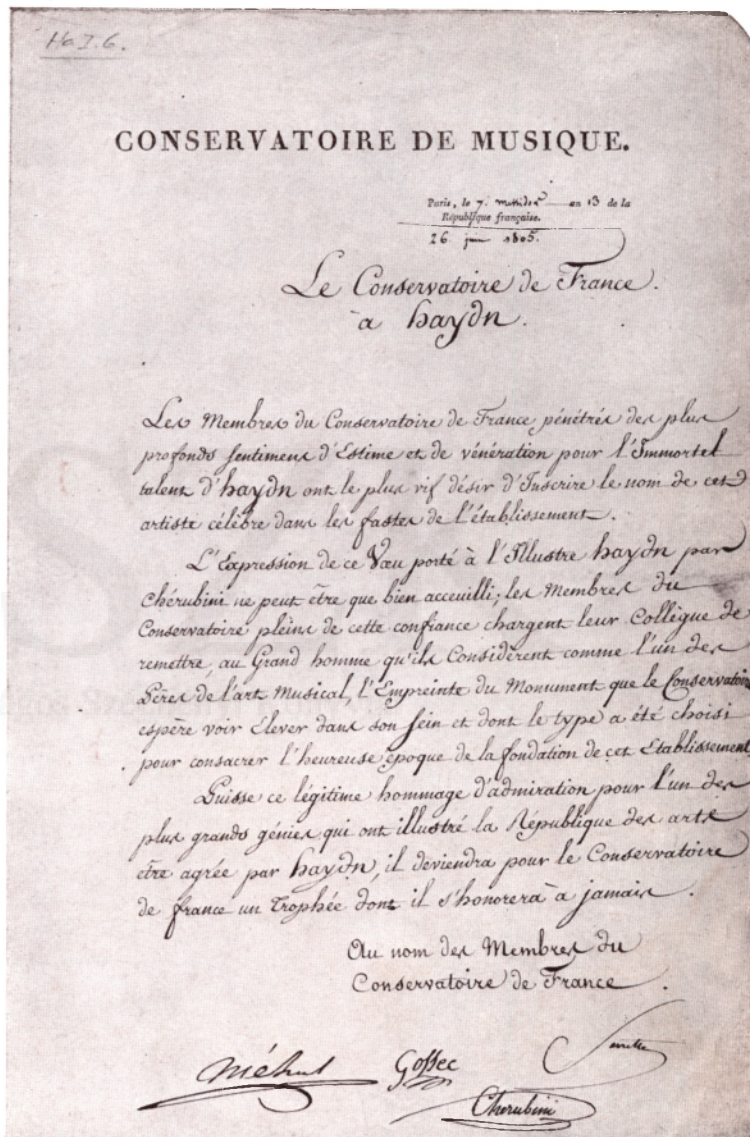 Ha I. 6.
CONSERVATOIRE DE MUSIQUE.
Paris, le 7. messidor an 13 de la
République française.
26 juin 1805.
Le Conservatoire de France.
à haydn.
Les Membres du Conservatoire de France, pénétrés des plus
profonds sentimens d'Estime et de vénération pour l'Immortel
talent d'haydn ont le plus vif désir d'Inscrire le nom de cet
artiste célèbre dans les fastes de l'établissement.
L'Expression de ce Vœu porté à l'Illustre haydn par
Chérubini ne peut être que bien acceuilli; les Membres du
Conservatoire pleins de cette confiance chargent leur Collègue de
remettre, au Grand homme qu'ils Considèrent comme l'un des
Pères de l'art Musical, l'Empreinte du Monument que le Conservatoire
espère voir Elever dans son sein et dont le type a été choisi
pour consacrer l'heureuse époque de la fondation de cet Etablissement
Puisse ce légitime hommage d'admiration pour l'un des
plus grands génies qui ont illustré la République des arts
etre agrée par haydn, il deviendra pour le Conservatoire
de france un Trophée dont il s'honorera à jamais.
Au nom des Membres du
Conservatoire de France.
Méhul Gossec Sarrette
Cherubini